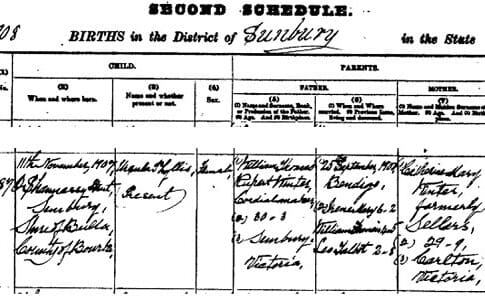 SECOND SCHEDULE.
908 BIRTHS in the District of Sunbury in the State
CHILD. PARENTS.
FATHER. MOTHER.
(1) (2) (3) (4) (5) (6) (7)
No. When and where born. Name and whether present or not. Sex. (1) Name and Surname, Rank, or Profession of the Father. (2) Age. And (3) Birthplace. (1) When and Where married. (2) Previous Issue, living and deceased. (1) Name and Maiden Surname of Mother. (2) Age. And (3) Birthplace.
11th November, 1907
Street,
Sunbury,
Shire of Bulla,
County of Bourke,
Phyllis,
Present
Female
William Thomas
Rupert Hunter,
Cordialmaker,
(2) 30-3
(3) Sunbury
Victoria,
25 September, 1901
Bendigo,
Irene Mary 6-2
Catherine Mary
Hunter,
formerly
Sellers,
(2) 29-9,
(3) Carlton,
Victoria,